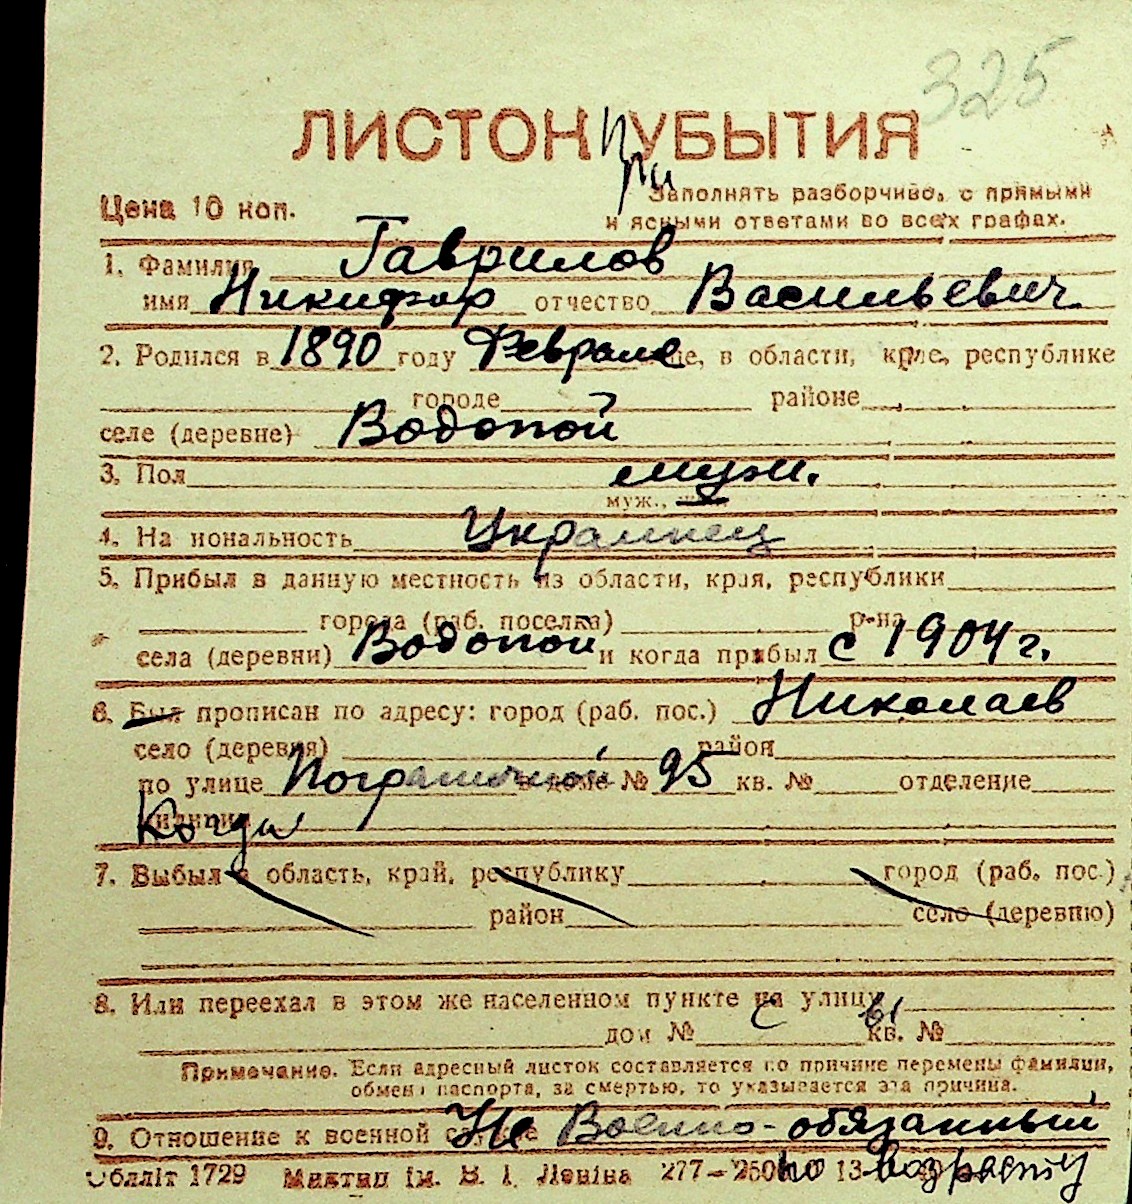 325
ЛИСТОК при УБЫТИЯ
Цена 10 коп.
Заполнять разборчиво, с прямыми
и ясными ответами во всех графах.
1. Фамилия Гаврилов
имя Никифор отчество Васильевич
2. Родился в 1890 году Феврале це, в области, крае, республике
городе районе
селе (деревне) Водопой
3. Пол муж.
муж.,
4. На иональность Украинец
5. Прибыл в данную местность из области, края, республики
города (раб. поселка) р-на
села (деревни) Водопой и когда прибыл с 1904 г.
6. Был прописан по адресу: город (раб. пос.) Николаев
село (деревня) район
по улице Пограничной в доме № 95 кв. № отделение
милиции
7. Выбыл в область, край, республику город (раб. пос.)
район село (деревню)
8. Или переехал в этом же населенном пункте с улицы
дом № кв. №
Примечание. Если адресный листок составляется по причине перемены фамилии,
обмена паспорта, за смертью, то указывается эта причина.
9. Отношение к военной службе Не Военно-обязанный
по возрасту
Обллiт 1729 iм. В. I. Ленiна 277-